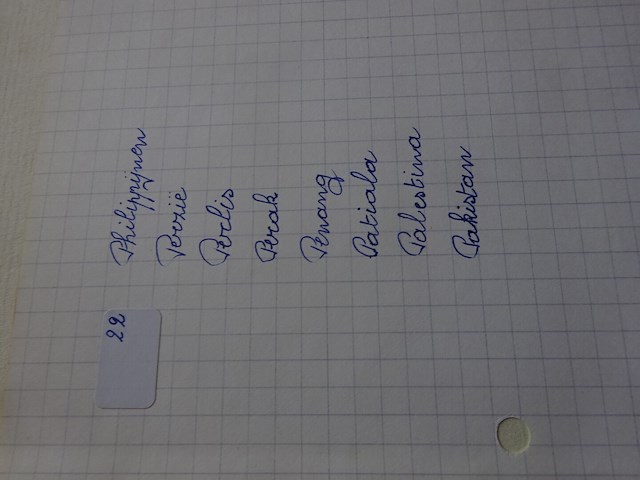 22
Philippijnen
Perzië
Perlis
Perak
Penang
Patiala
Palestina
Pakistan